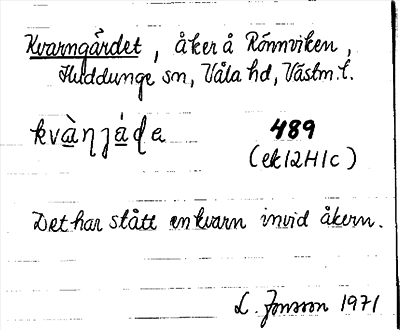 Kvarngärdet, åker å Rönnviken,
Huddunge sn, Våla hd, Västm. l.
kvàŋɟáɖa 489
(ek 12H1c)
Det har stått en kvarn invid åkern.
L. Jonsson 1971